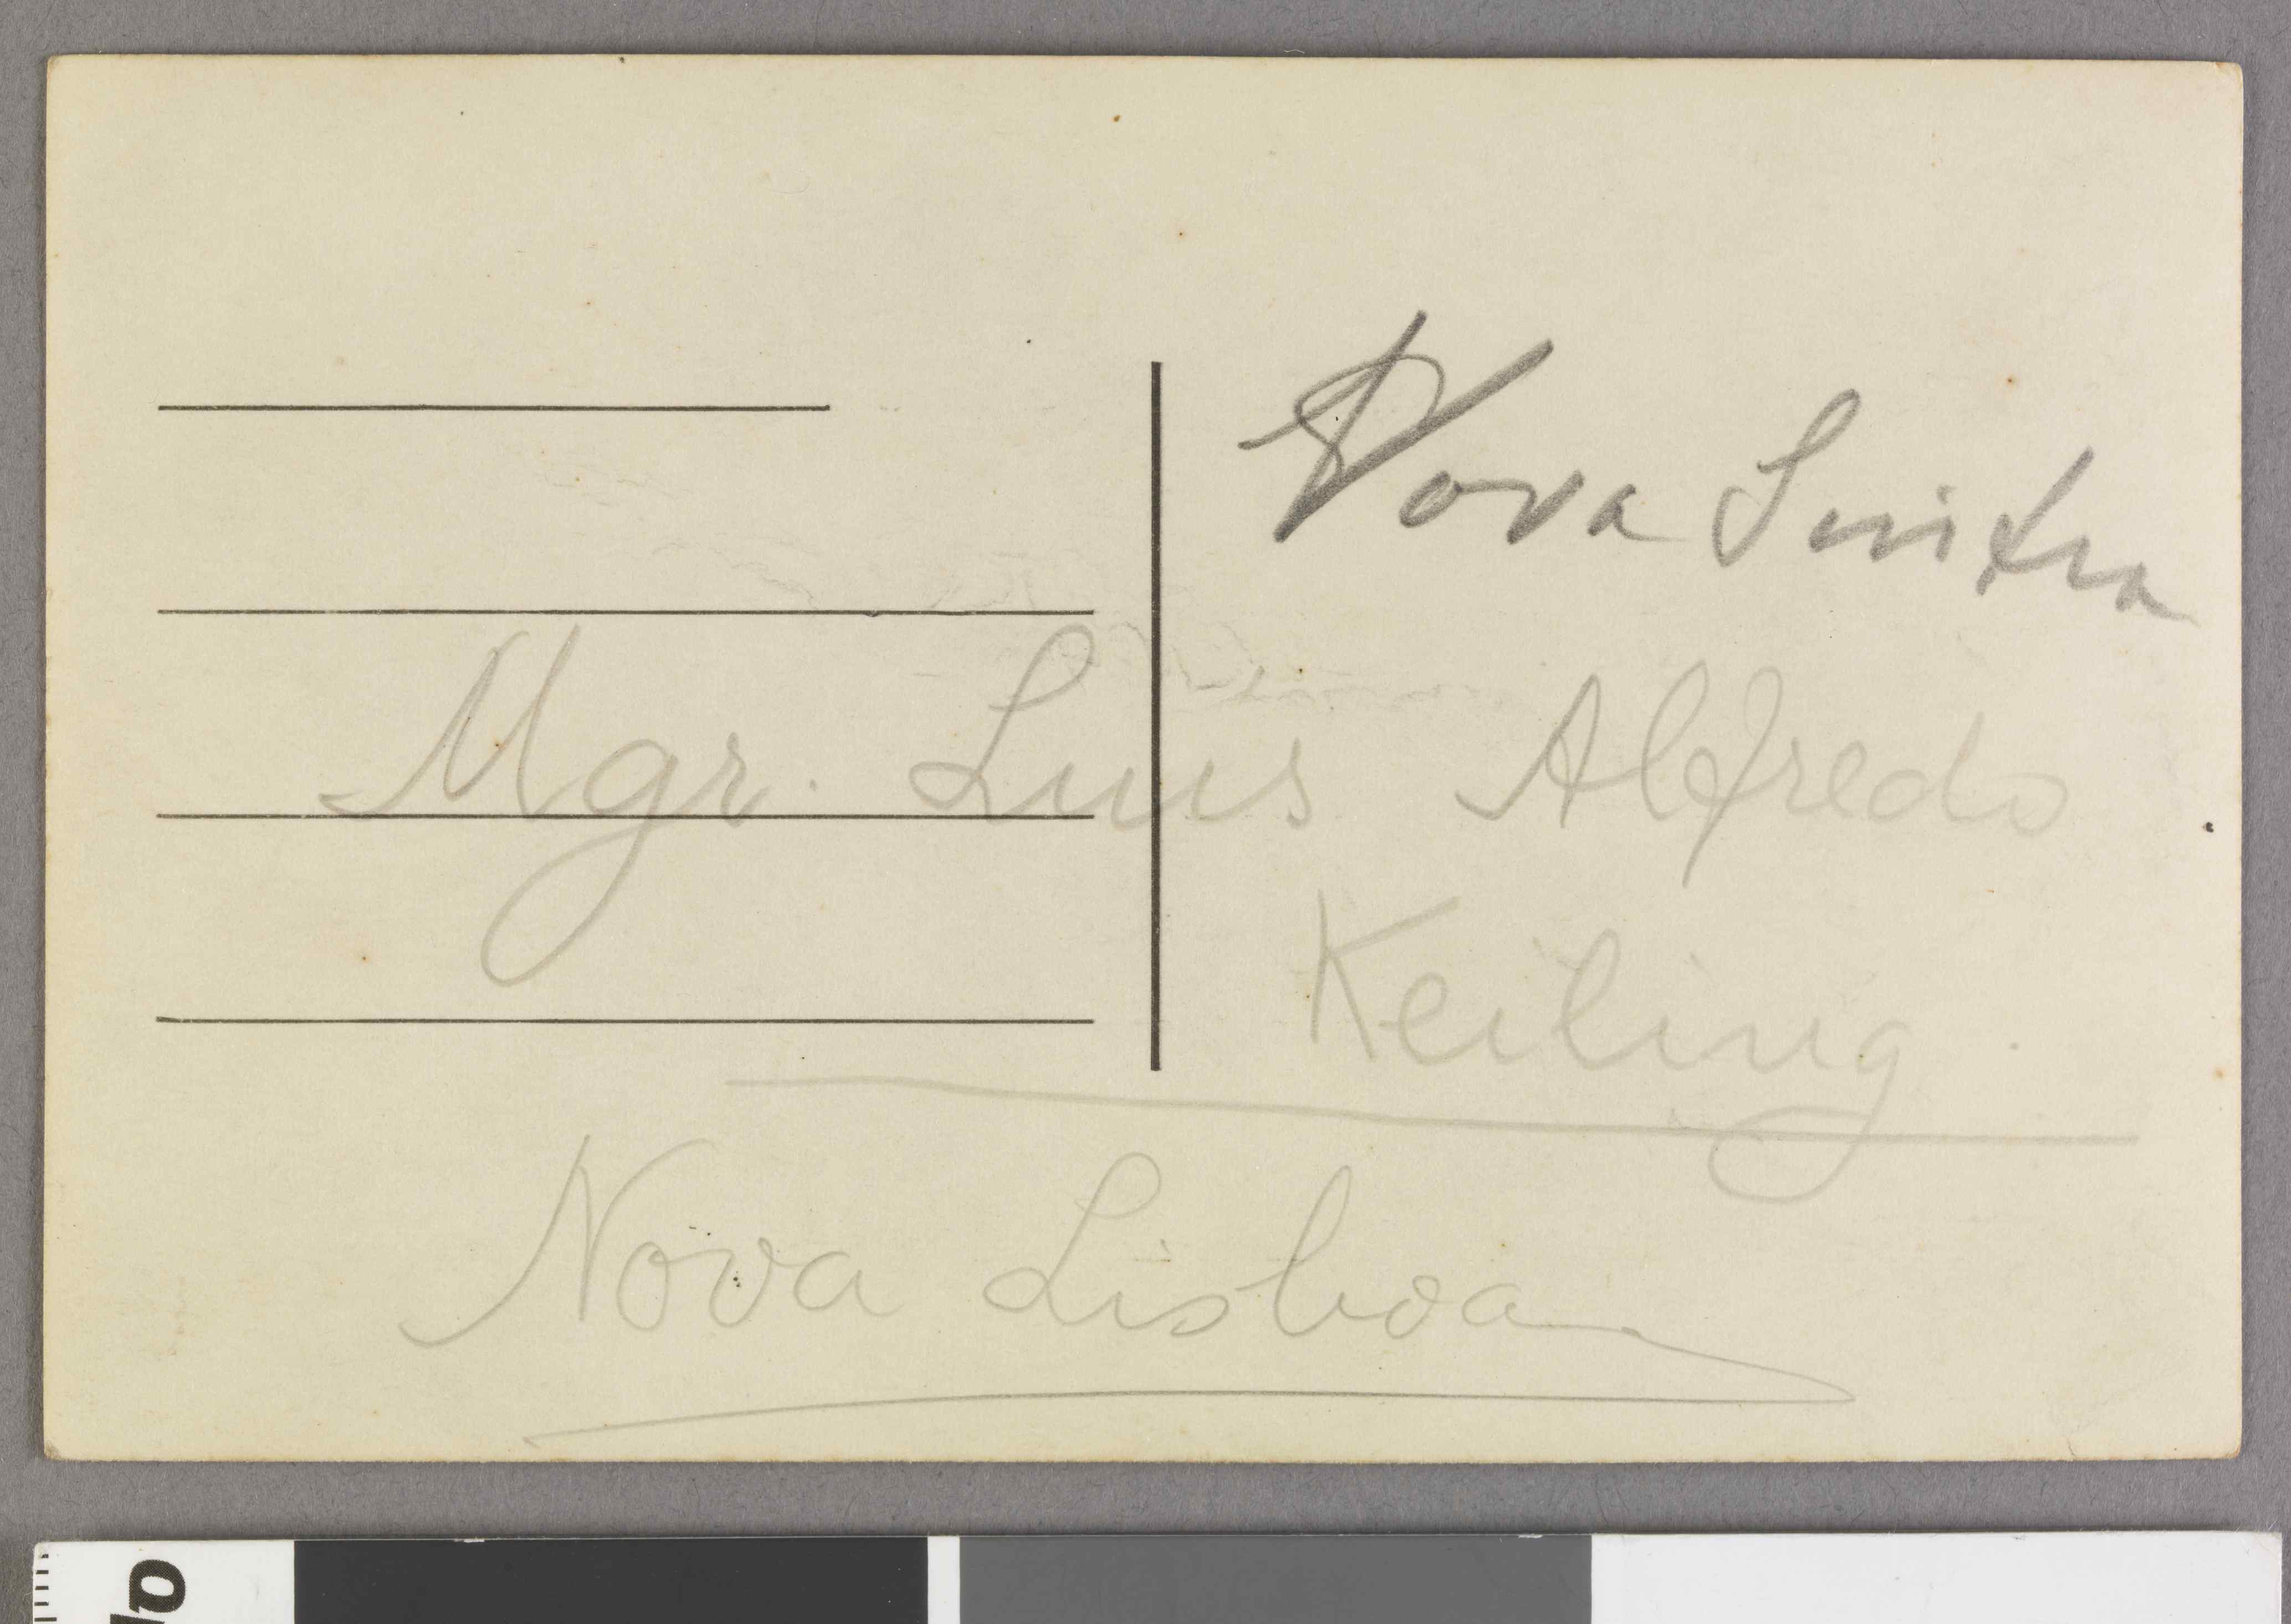 Nova Sintra
Mgr. Luis Alfredo
Keiling.
Nova Lisboa